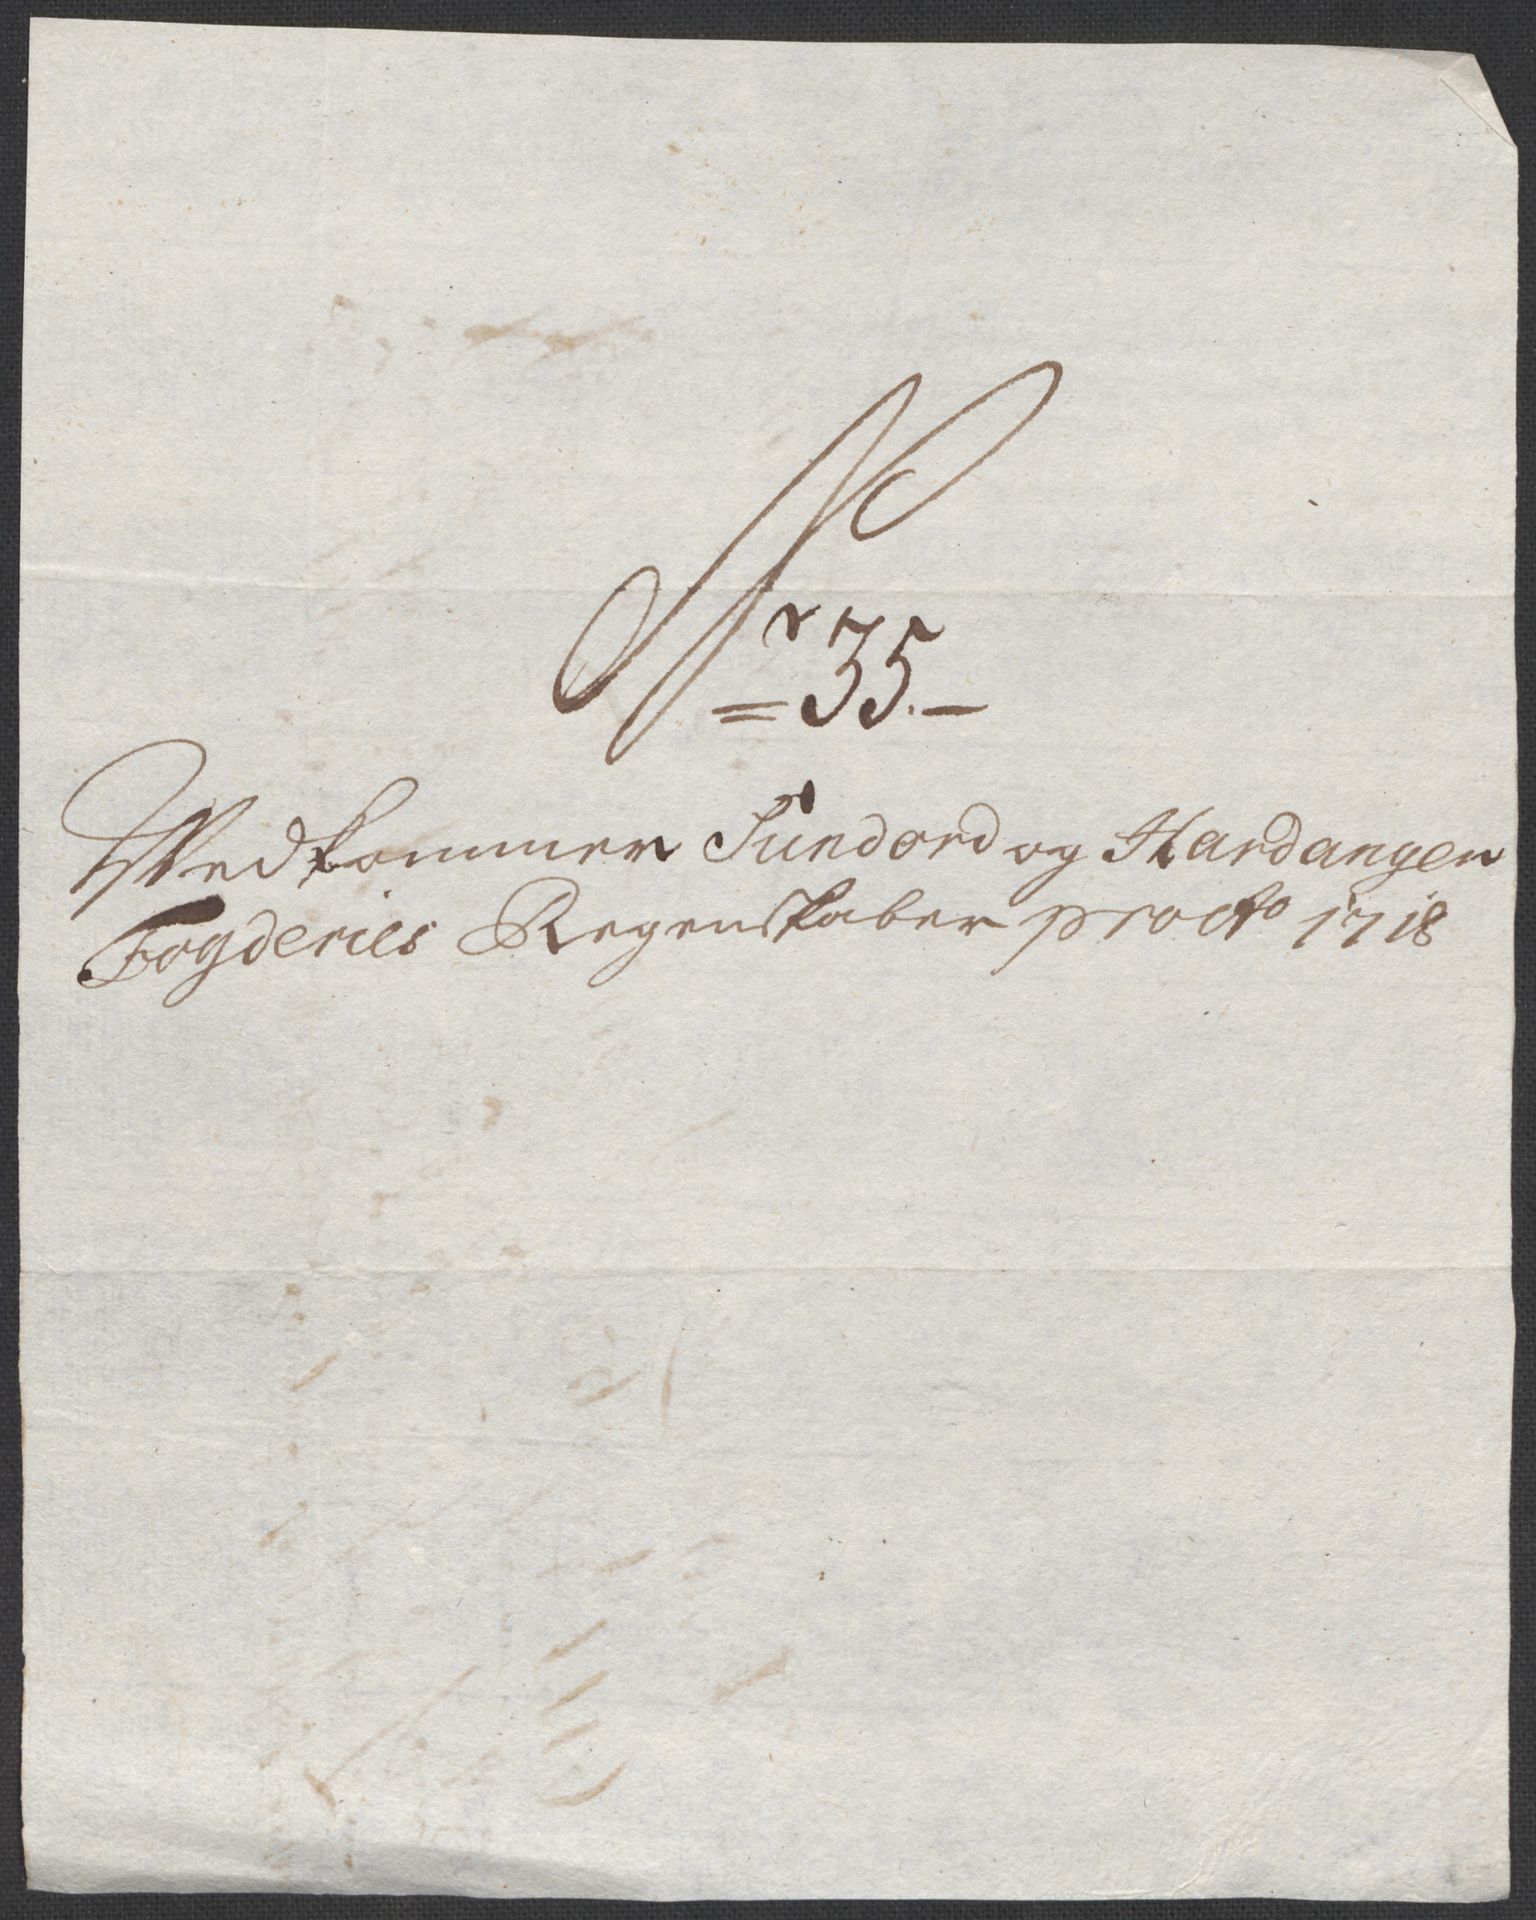 Nr 35.
Vedkommer Sundord og Hardanger
Fogderies Regenskaber pro Ao 1718